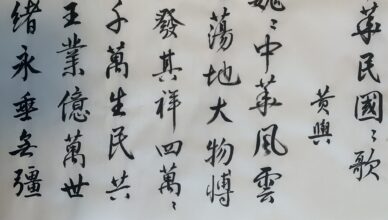 華民國〻歌
黃興
巍〻中華風雲
蕩地大物博
發其祥四萬〻
千萬生民共
王業億萬世
緒永垂無疆